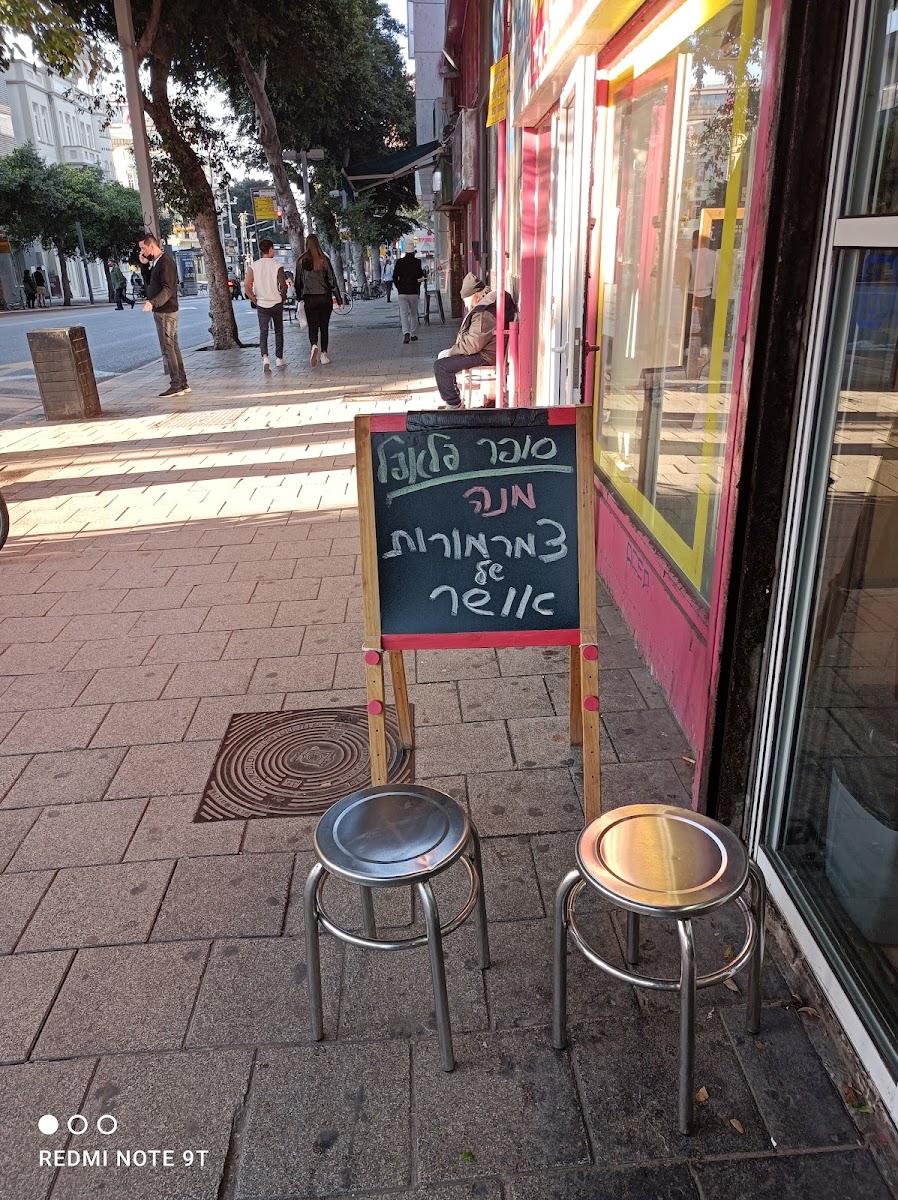 סופר פלאפל
מנה
צמרמורות
של
אושר
REDMI NOTE 9T